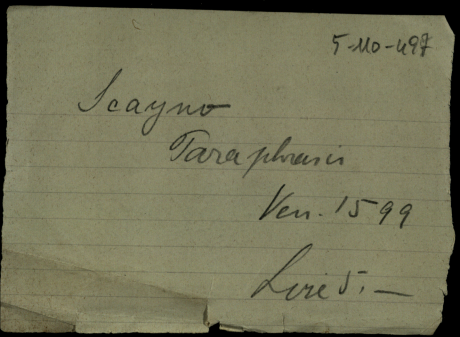 5-110-497
Scayno
Paraphrasis
Ven. 1599
Lire 5.—